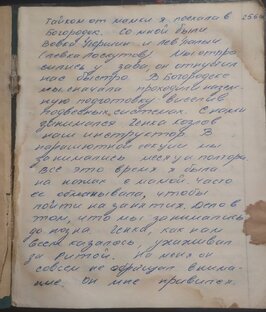 Тайком от мамки я поехала в
Богородск. Со мной были
Вовка и Левка
(Левка Лоскутов) Мы отпро
сились у зава, он отпустил
нас быстро. В Богородске
мы сначала проходили назем-
ную подготовку, висели в
подвесных системах. С нами
занимался Генка Козлов
наш инструктор. В
парашютной секции мы
занимались месяц и полтора
все это время я была
на ножах с мамой. Часто
ее обманывала, чтобы
пойти на занятия. Дело в
том, что мы занимались
до поздна. Генка, как нам
всем казалось, ухаживал
за Ритой. На меня он
совсем не обращал внима-
ние. Он мне нравился.